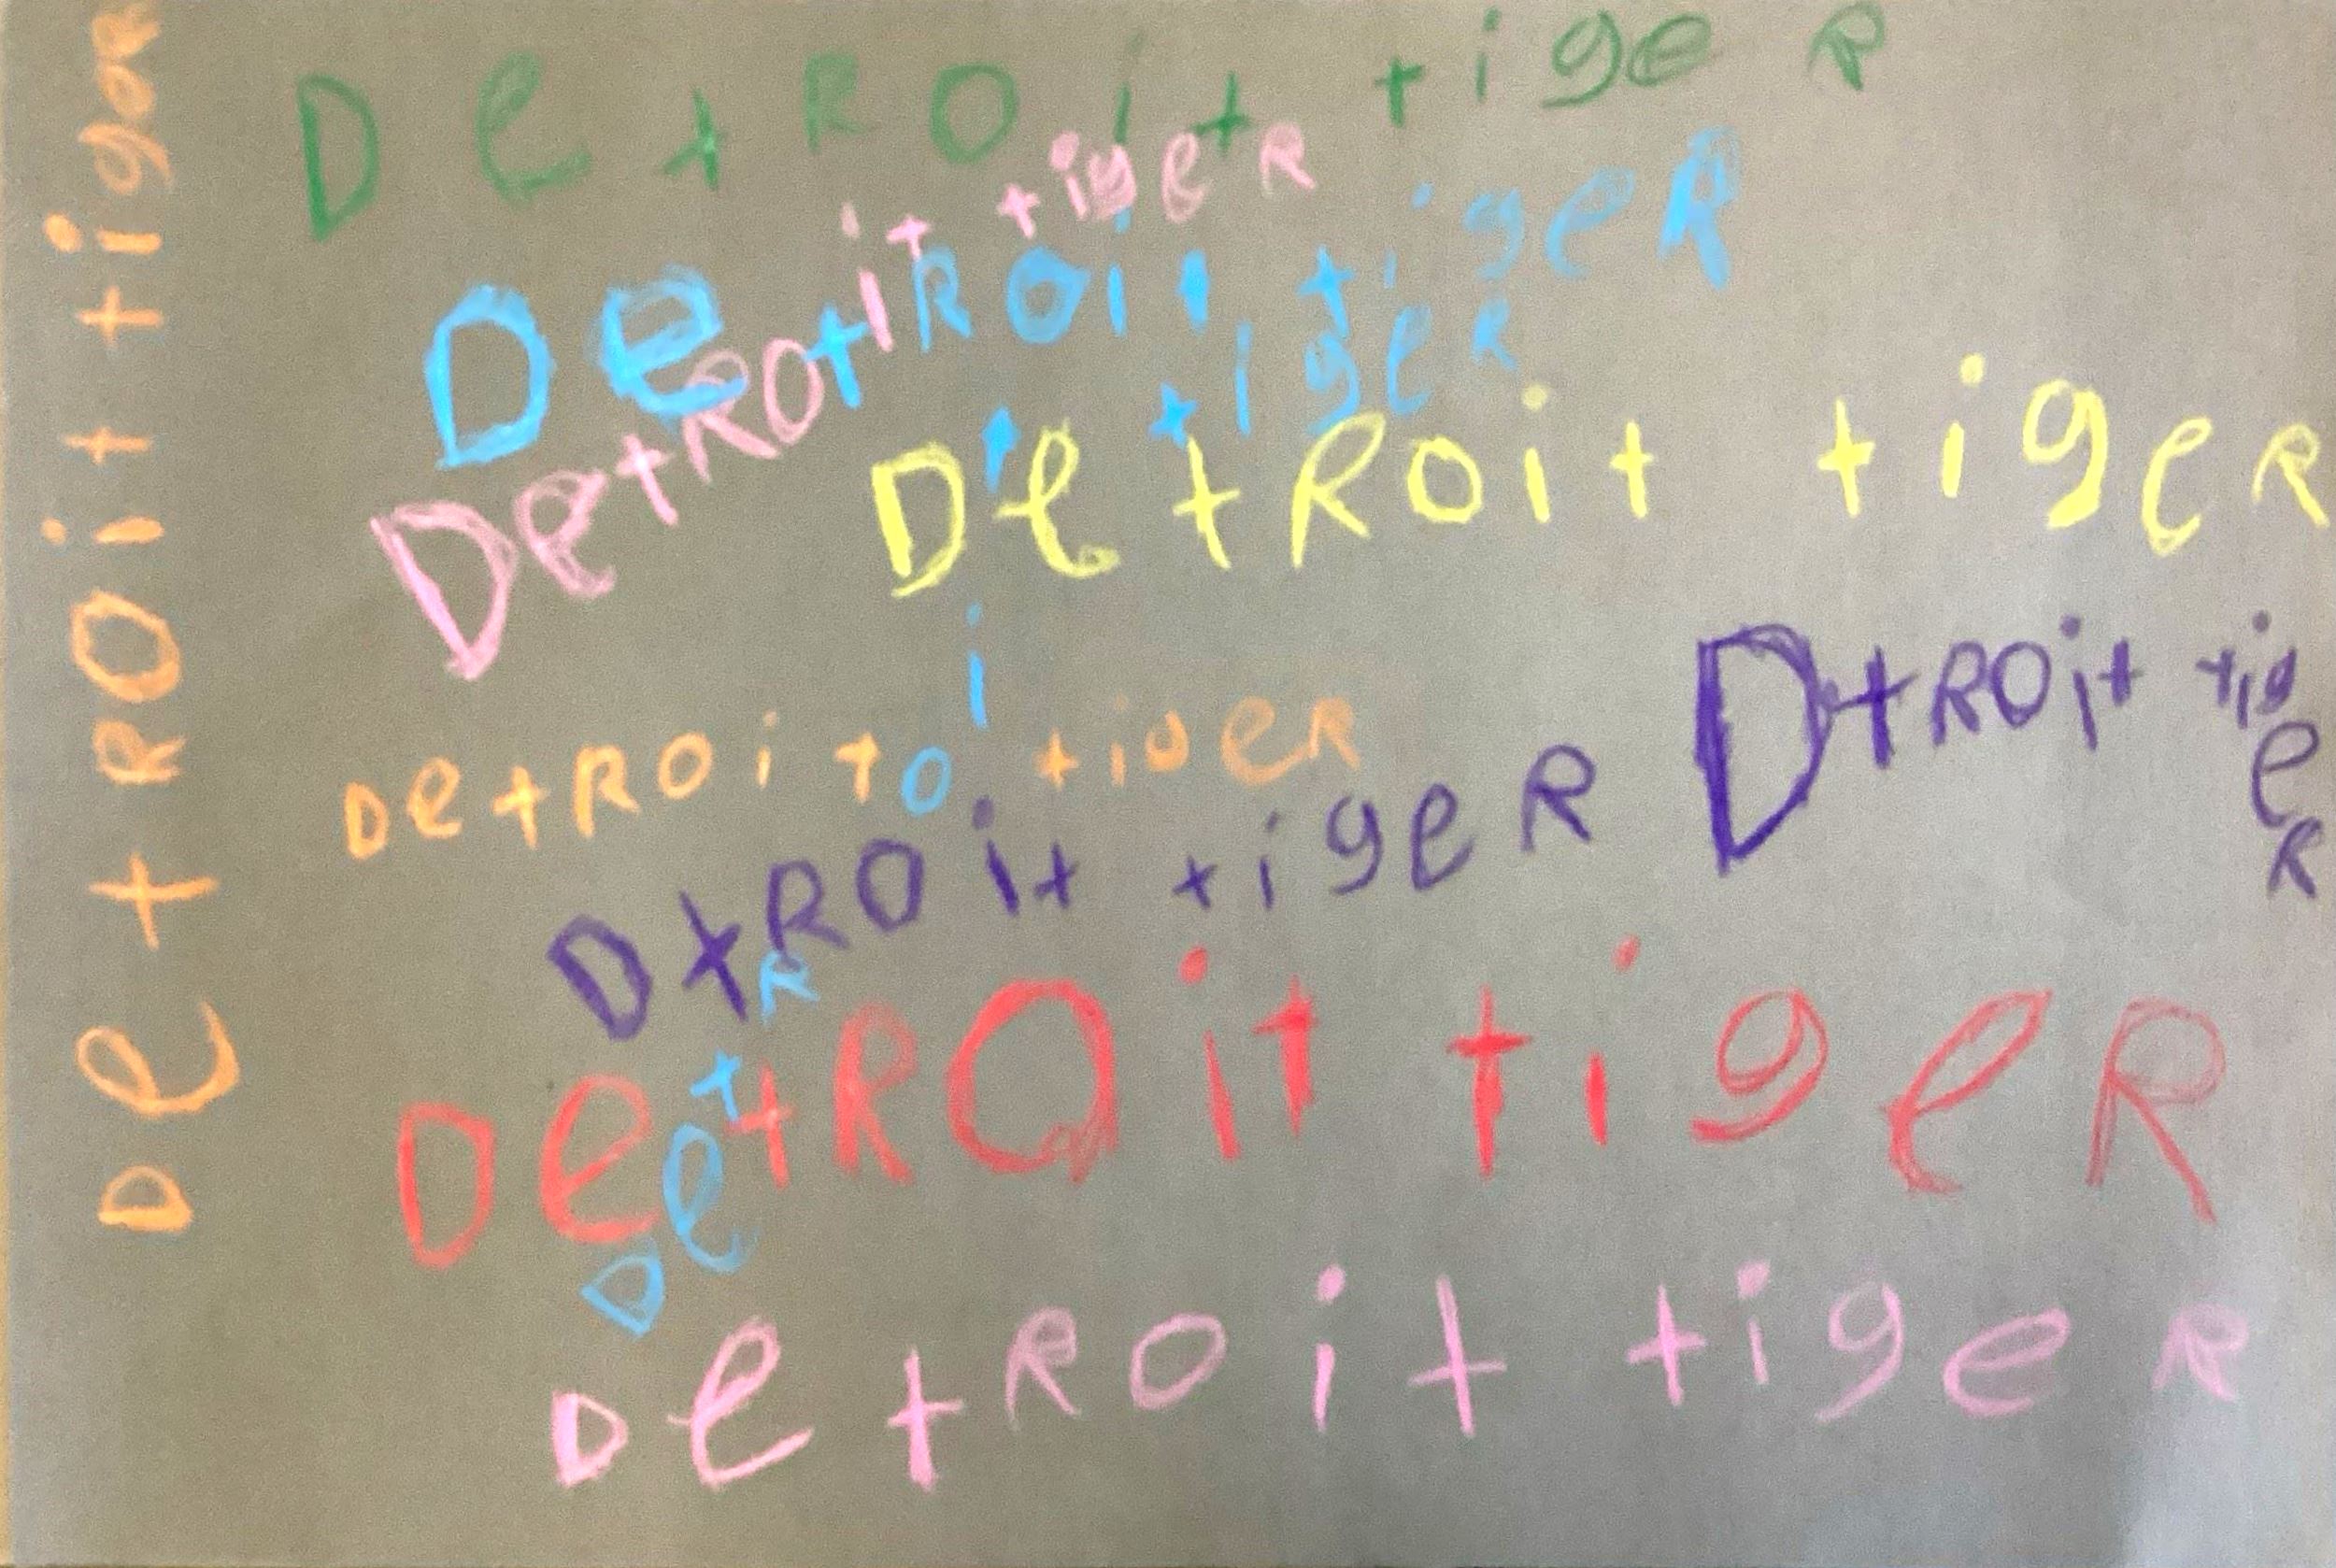 DetRoit tigeR
DetRoit tigeR
DetRoit tigeR
DetRoit tigeR
DetRoit tigeR
DetRoit tigeR
DetRoit tigeR
DtRoit tigeR
DtRoit tigeR
DetRoit tigeR
DetRoit tigeR